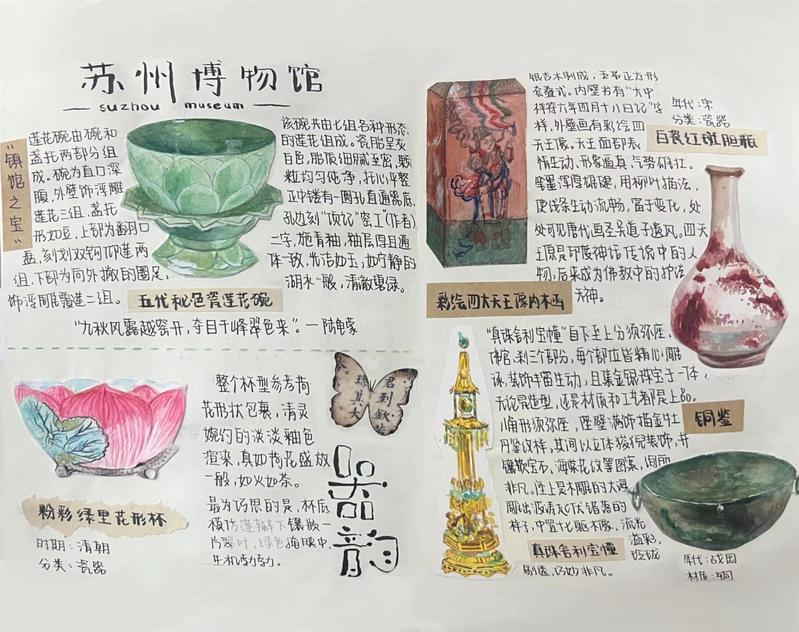 苏州博物馆
suzhou museum
"镇馆之宝"
莲花碗由碗和
盏托两部分组
成。碗为直口深
腹,外壁饰浮雕
莲花三组,盏托
形如豆,上部为翻口
盘,刻划双钩仰莲两
组,下部为向外撇的圈足,
饰浮雕覆莲二组。
该碗共由七组各种形态
的莲花组成。瓷胎呈灰
白色,胎质细腻至密,颗
粒均匀纯净,托心平整
正中镂有一圆孔直通器底,
孔边刻"项记"窑工"(作者)
二字,施青釉,釉层厚且通
体一致,光洁如玉,如宁静的
湖水一般,清澈碧绿。
五代秘色瓷莲花碗
"九秋风露越窑开,夺目千峰翠色来"。一陆龟蒙
粉彩绿里花形杯
时期:清朝
分类:瓷器
整个杯型参考荷
花形状包裹,清灵
婉约的淡淡釉色
渲染,真如荷花盛放
一般,如火如荼。
最为巧思的是,杯底
模仿莲瓣下镶嵌一
片翠叶,绿色掩映中
生机勃勃。
君到
器韵
银杏木制成,呈正方形
套叠式。内壁书有"大中
祥符六年四月十八日记"字
样,外壁画有彩绘四
天王像。天王面部表
情生动,形象逼真,气势雄壮。
笔墨浑厚雄健,用柳叶描法,
使线条生动流畅,富于变化,处
处可见唐代画圣吴道子遗风。四大
天王原是印度神话传说中的人
物,后来成为佛教中的护法
天神。
彩绘四大天王像内木函
年代:宋
分类:瓷器
白瓷红斑胆瓶
"真珠舍利宝幢"自下至上分须弥座,
佛宫、刹三个部份,每个部位皆精心雕
琢,装饰丰富生动,且集金银珠宝于一体,
无论是造型,还是材质和工艺都是上品。
八角形须弥座,座壁满饰描金牡
丹等纹样,其间以立体狻猊装饰,并
镶嵌宝石,海棠花纹等图案,绚丽
非凡。座上是木雕的大海
雕出波涛
样子,中置
溢彩,
玲珑
剔透,巧妙非凡。
真珠舍利宝幢
铜鉴
年代:战国
材质:铜